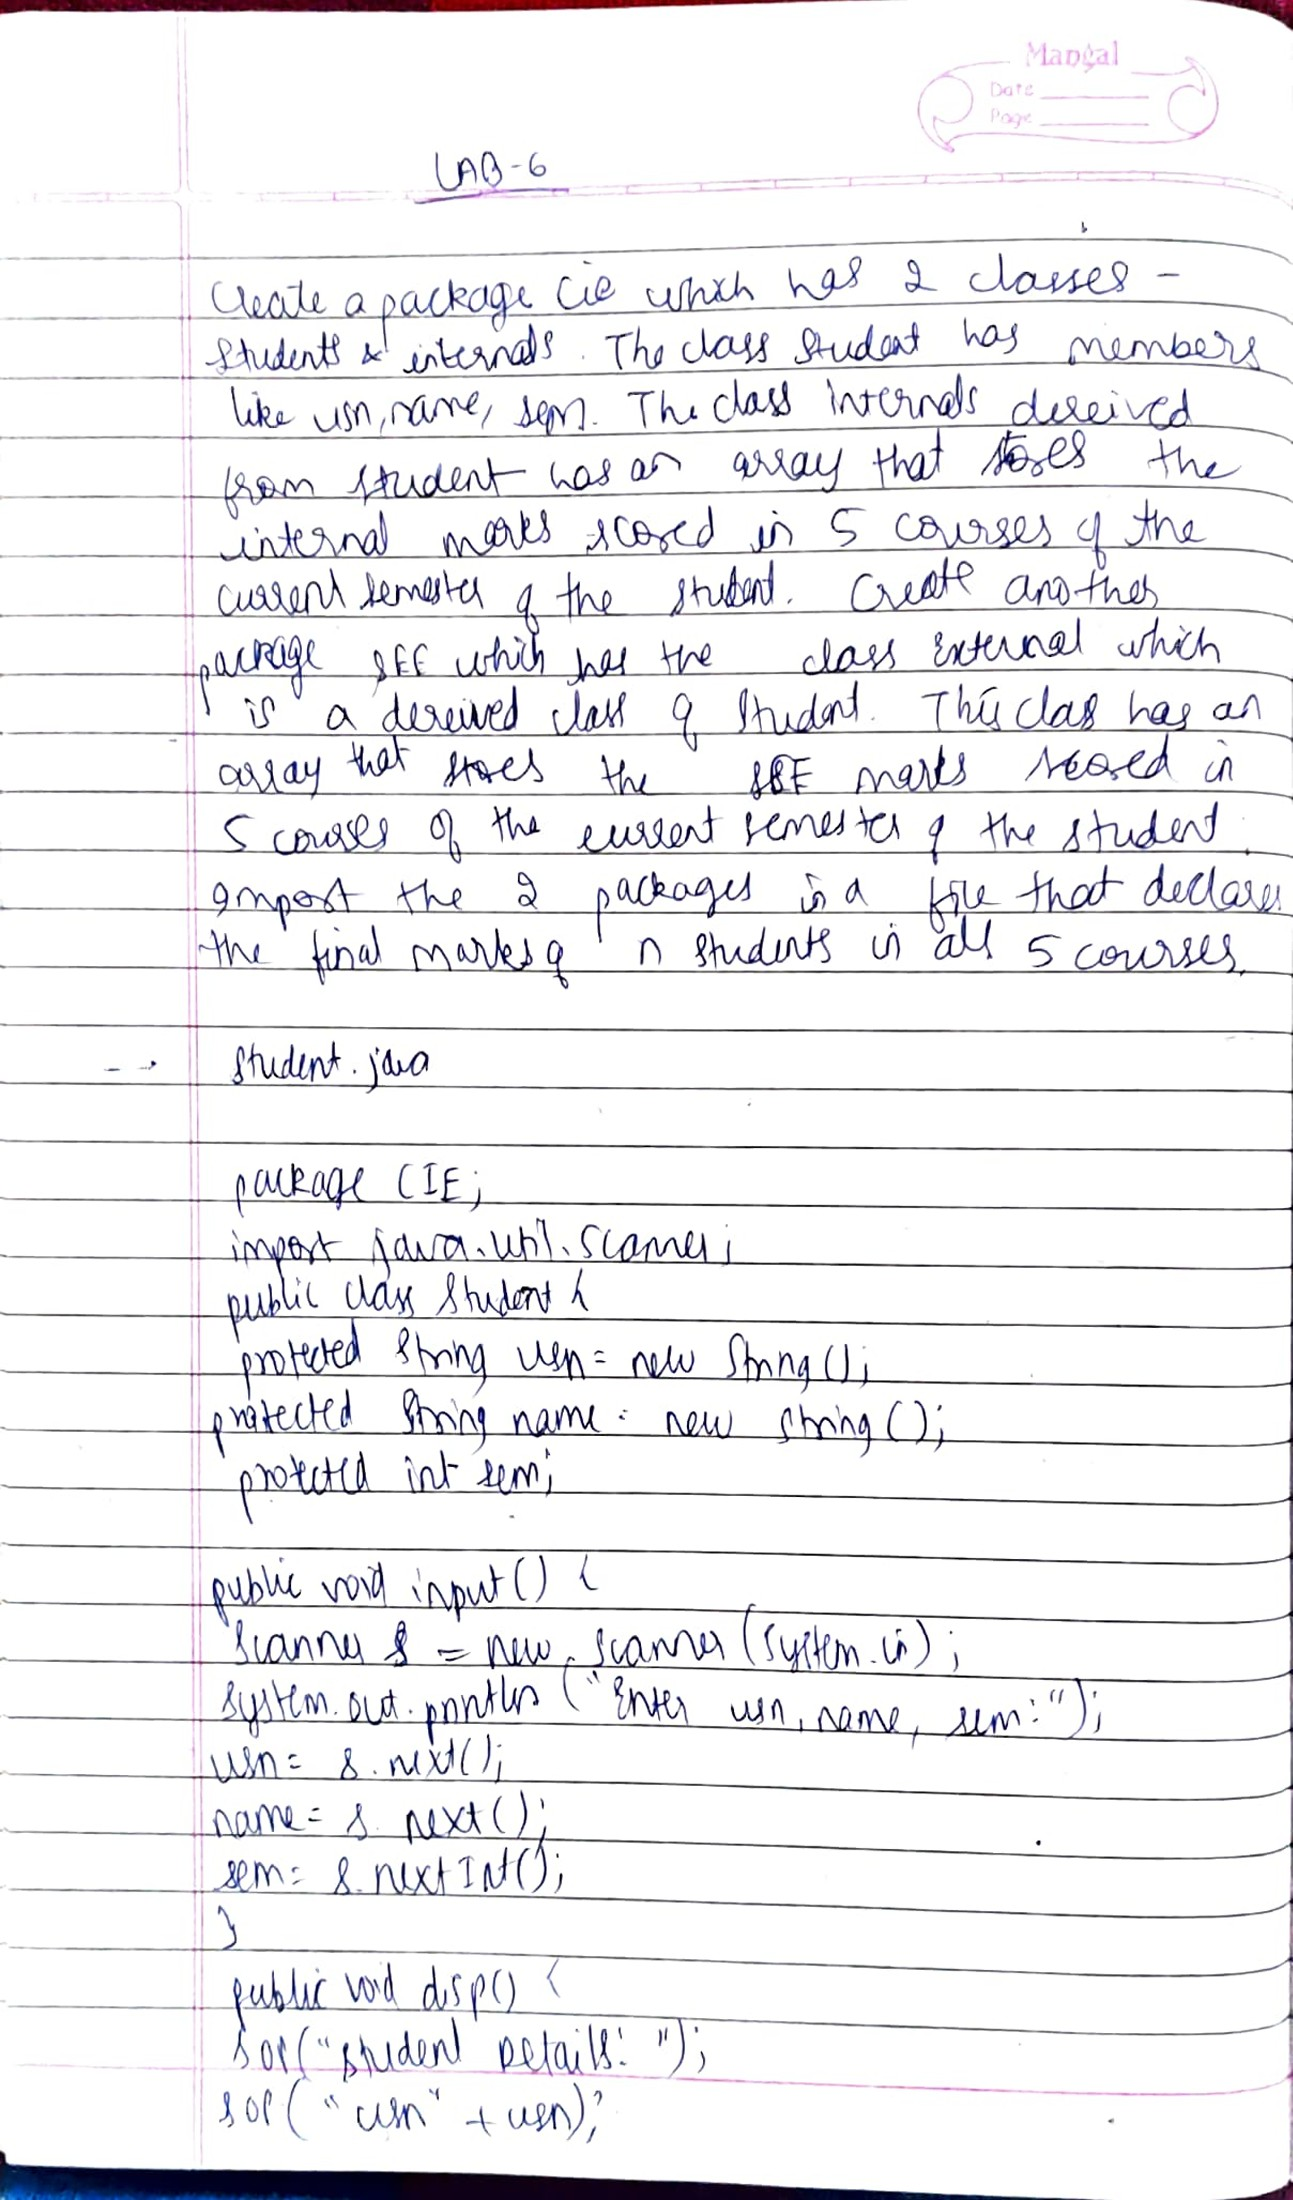 Mangal
Date
Page
LAB-6
Create a package Cie which has 2 classes -
Students & internals. The class Student has members
like usn, name, sem. The class internals dereived
from student has an array that stores the
internal marks scored in 5 courses of the
current semester of the student. Create another
package SEE which has the class External which
is a dereived class of Student. This clas has an
array that stores the SEE marks scored in
5 courses of the current semester of the student.
Import the 2 packages in a file that declares
the final marks of n students in all 5 courses.
--> Student.java
package CIE;
import java.util.Scanner;
public class Student {
protected String usn = new String();
protected String name = new String();
protected int sem;
public void input() {
Scanner s = new Scanner (System.in);
System.out.println ("Enter usn, name, sem:");
usn = s.next();
name = s.next();
sem = s.nextInt();
}
public void disp() {
sop("Student Details: ");
sop("usn" + usn);